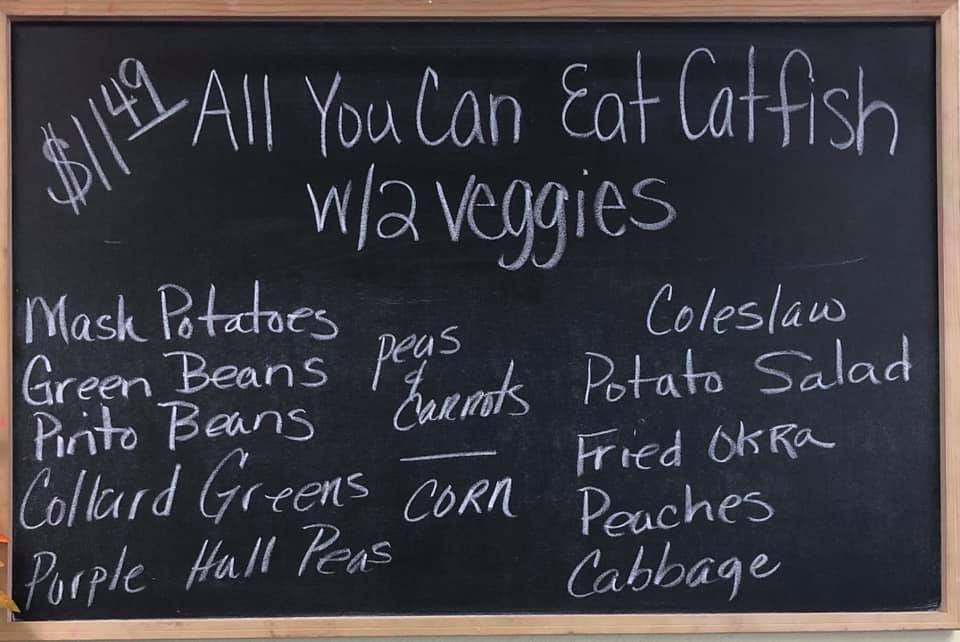 $11.49 All You Can Eat Catfish
w/2 veggies
Mask Potatoes
Green Beans
Pinto Beans
Collard Greens
Purple Hull Peas
peas
&
Carrots
CORN
Coleslaw
Potato Salad
Fried OKRa
Peaches
Cabbage